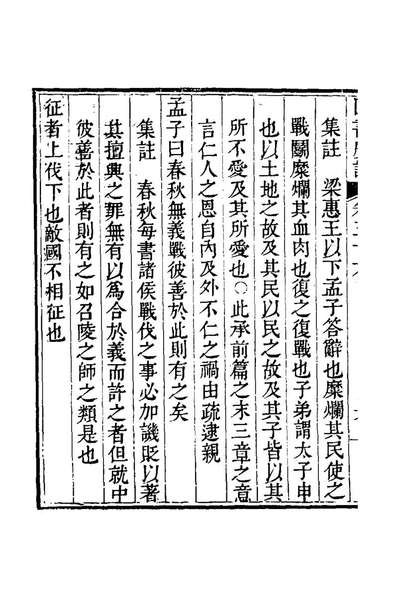 集註　梁惠王以下孟子答辭也糜爛其民使之
戰鬬糜爛其血肉也復之復戰也子弟謂太子申
也以土地之故及其民以民之故及其子皆以其
所不愛及其所愛也○此承前篇之末三章之意
言仁人之恩自內及外不仁之禍由疏逮親
孟子曰春秋無義戰彼善於此則有之矣
集註　春秋每書諸侯戰伐之事必加譏貶以著
其擅興之罪無有以為合於義而許之者但就中
彼善於此者則有之如召陵之師之類是也
征者上伐下也敵國不相征也